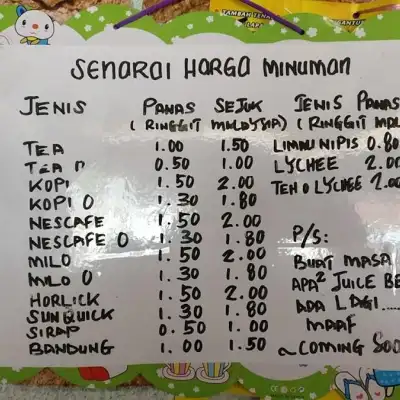 TAMBAH
SENARAI HARGA MINUMAN
JENIS PANAS SEJUK JENIS PANAS
( RINGGIT MALAYSIA) ( RINGGIT MAL
TEA 1.00 1.50 LIMAU NIPIS 0.80
TEA O 0.50 1.00 LYCHEE 2.00
KOPI 1.50 2.00 TEH O LYCHEE 2.00
KOPI O 1.30 1.80
NESCAFE 1.50 2.00
NESCAFE O 1.30 1.80 P/S:
MILO 1.50 2.00 BUAT MASA
MILO O 1.30 1.80 APA² JUICE BE
HORLICK 1.50 2.00 ADA LAGI....
SUNQUICK 1.30 1.80 MAAF
SIRAP 0.50 1.00
BANDUNG 1.00 1.50 ~COMING SOO